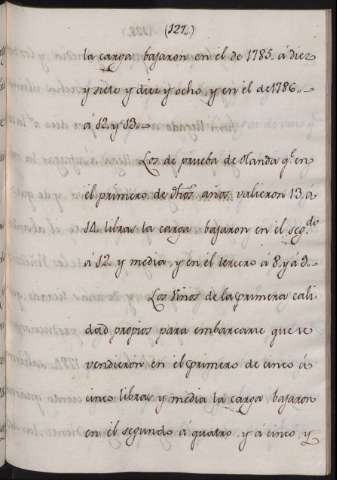 (127.)
la carga bajaron en el de 1785. á diez
y siete y diez y ocho, y en el de 1786.
á 12. y 13.
Los de prueba de Olanda q.e en
el primero de dhos. años, valieron 13. a
14. libras la carga bajaron en el seg.do
á 12. y media, y en el tercero á 8. y á 9.
Los Vinos de la primera cali
dad propios para embarcarse que se
vendieron en el primero de cinco á
cinco libras y media la carga, bajaron
en el segundo á quatro, y á cinco, y